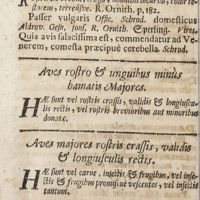 restern, terrestre. R. Ornith. p.182.
Passer vulgaris Offic. Schrod. domesticus
Aldrov. Gesn. Jonst. R. Ornith. Sperling. Vires.
Quia avis salacissima est, commendatur ad Ve-
nerem, comesta præcipuè cerebella. Schrod.
Aves rostro & unguibus minùs
hamatis Majores.
HÆ sunt vel rostris crassis, validis & longiuscu-
lis rectis, vel rostris brevioribus aut minoribus
donatæ.
Aves majores rostris crassis, validis
& longiusculis rectis.
HÆ sunt vel carne, insectis & frugibus, vel in-
sectis & frugibus promiscuè vescentes, vel insectis
tantum.